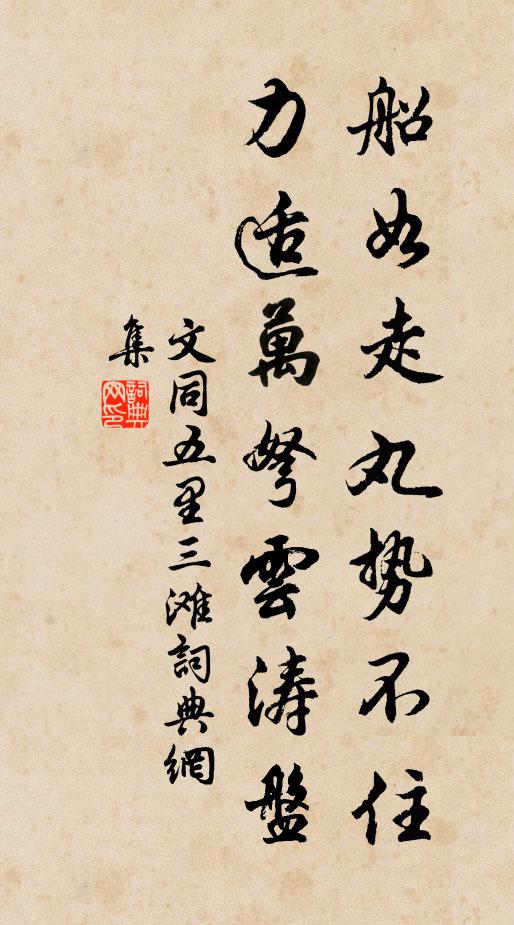 船如走丸势不住
力适萬弩雲涛盤
文同五里三滩詞典網
集
詞典网印